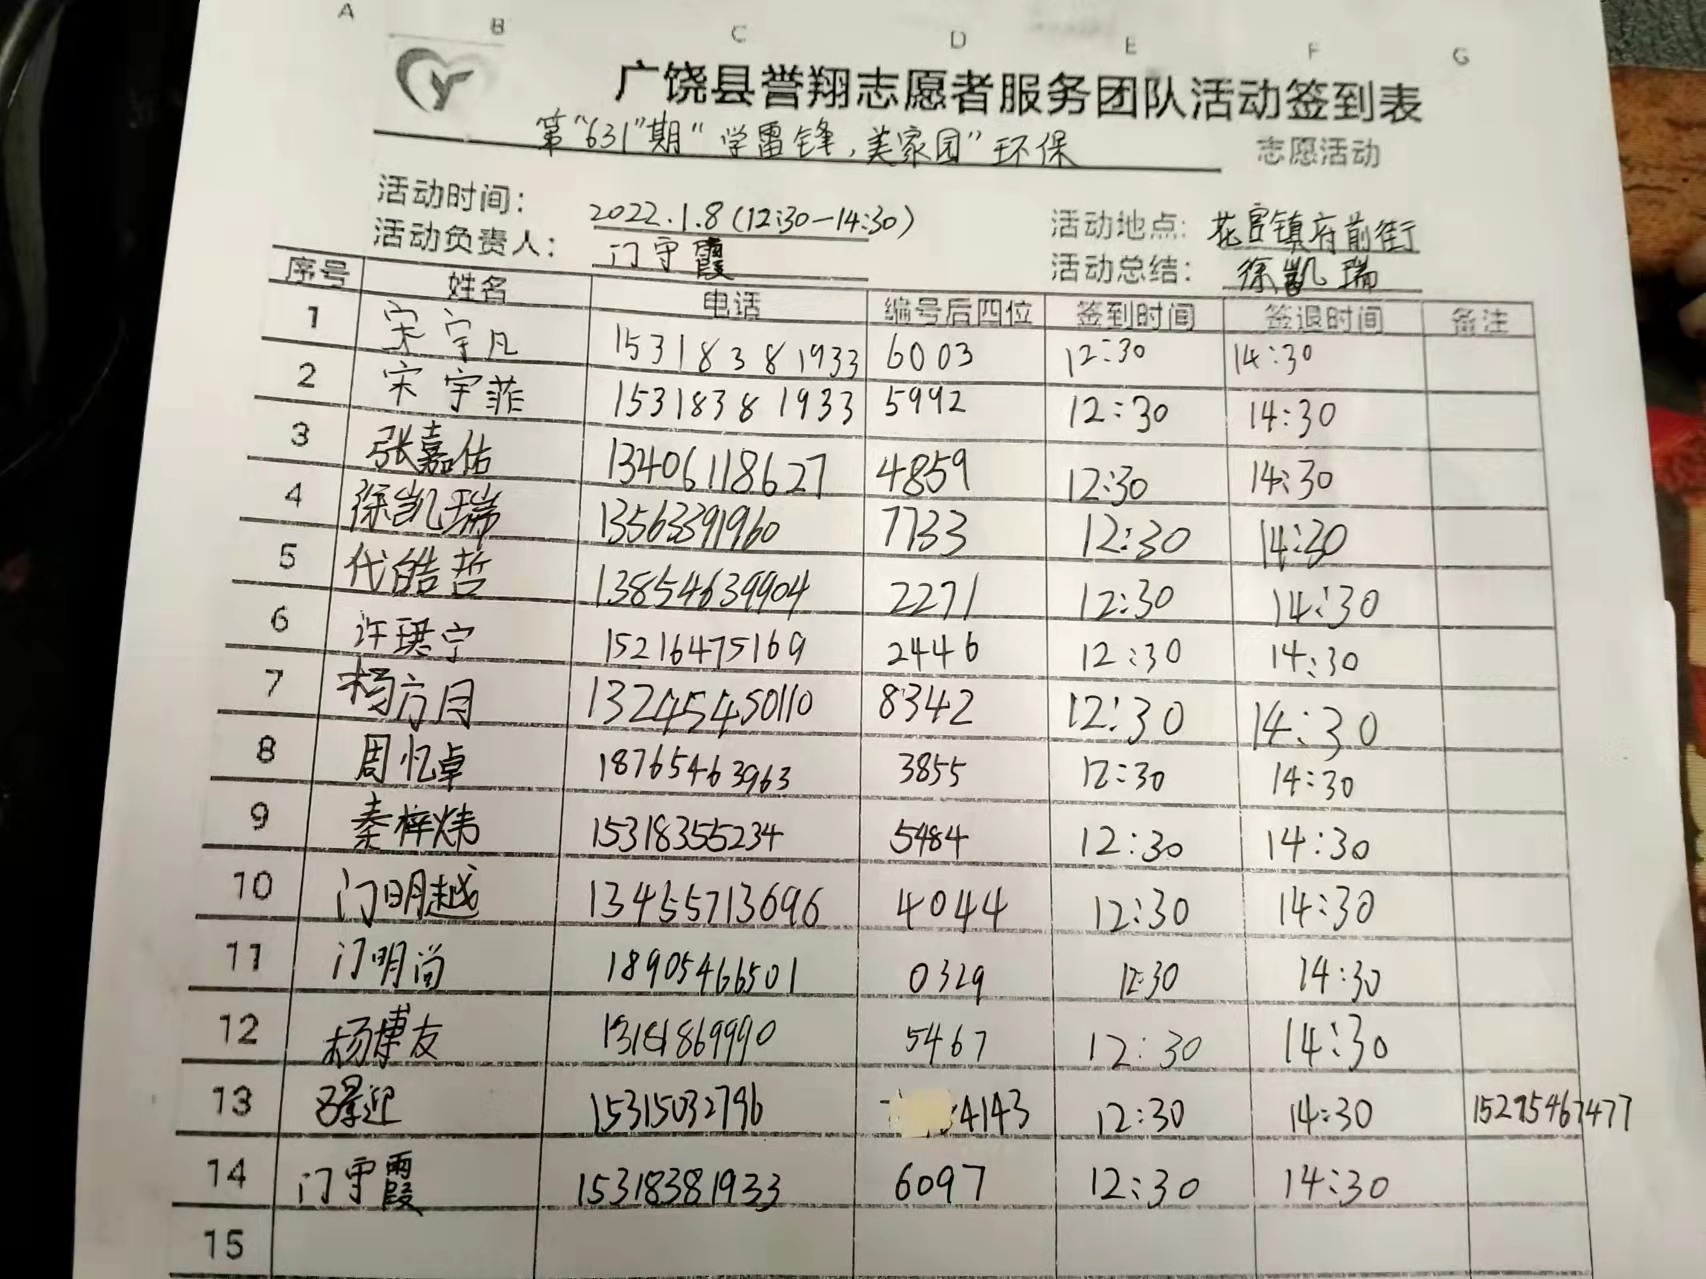 A B C D E F G
广饶县誉翔志愿者服务团队活动签到表
第“631”期“学雷锋，美家园”环保 志愿活动
活动时间： 2022.1.8(12:30-14:30) 活动地点: 花官镇府前街
活动负责人： 门守霞 活动总结： 徐凯瑞
序号 姓名 电话 编号后四位 签到时间 签退时间 备注
1 宋宇凡 15318381933 6003 12:30 14:30
2 宋宇菲 15318381933 5992 12:30 14:30
3 张嘉佑 13406118627 4859 12:30 14:30
4 徐凯瑞 13563391960 7733 12:30 14:30
5 代皓哲 13854639904 2271 12:30 14:30
6 许珺宁 15216475169 2446 12:30 14:30
7 杨方同 13245450110 8342 12:30 14:30
8 周忆卓 18765463963 3855 12:30 14:30
9 秦梓炜 15318355234 5484 12:30 14:30
10 门明越 13455713696 4044 12:30 14:30
11 门明尚 18905466501 0329 12:30 14:30
12 杨博友 13181869990 5467 12:30 14:30
13 15315032796 4143 12:30 14:30 15295467477
14 门守霞 15318381933 6097 12:30 14:30
15